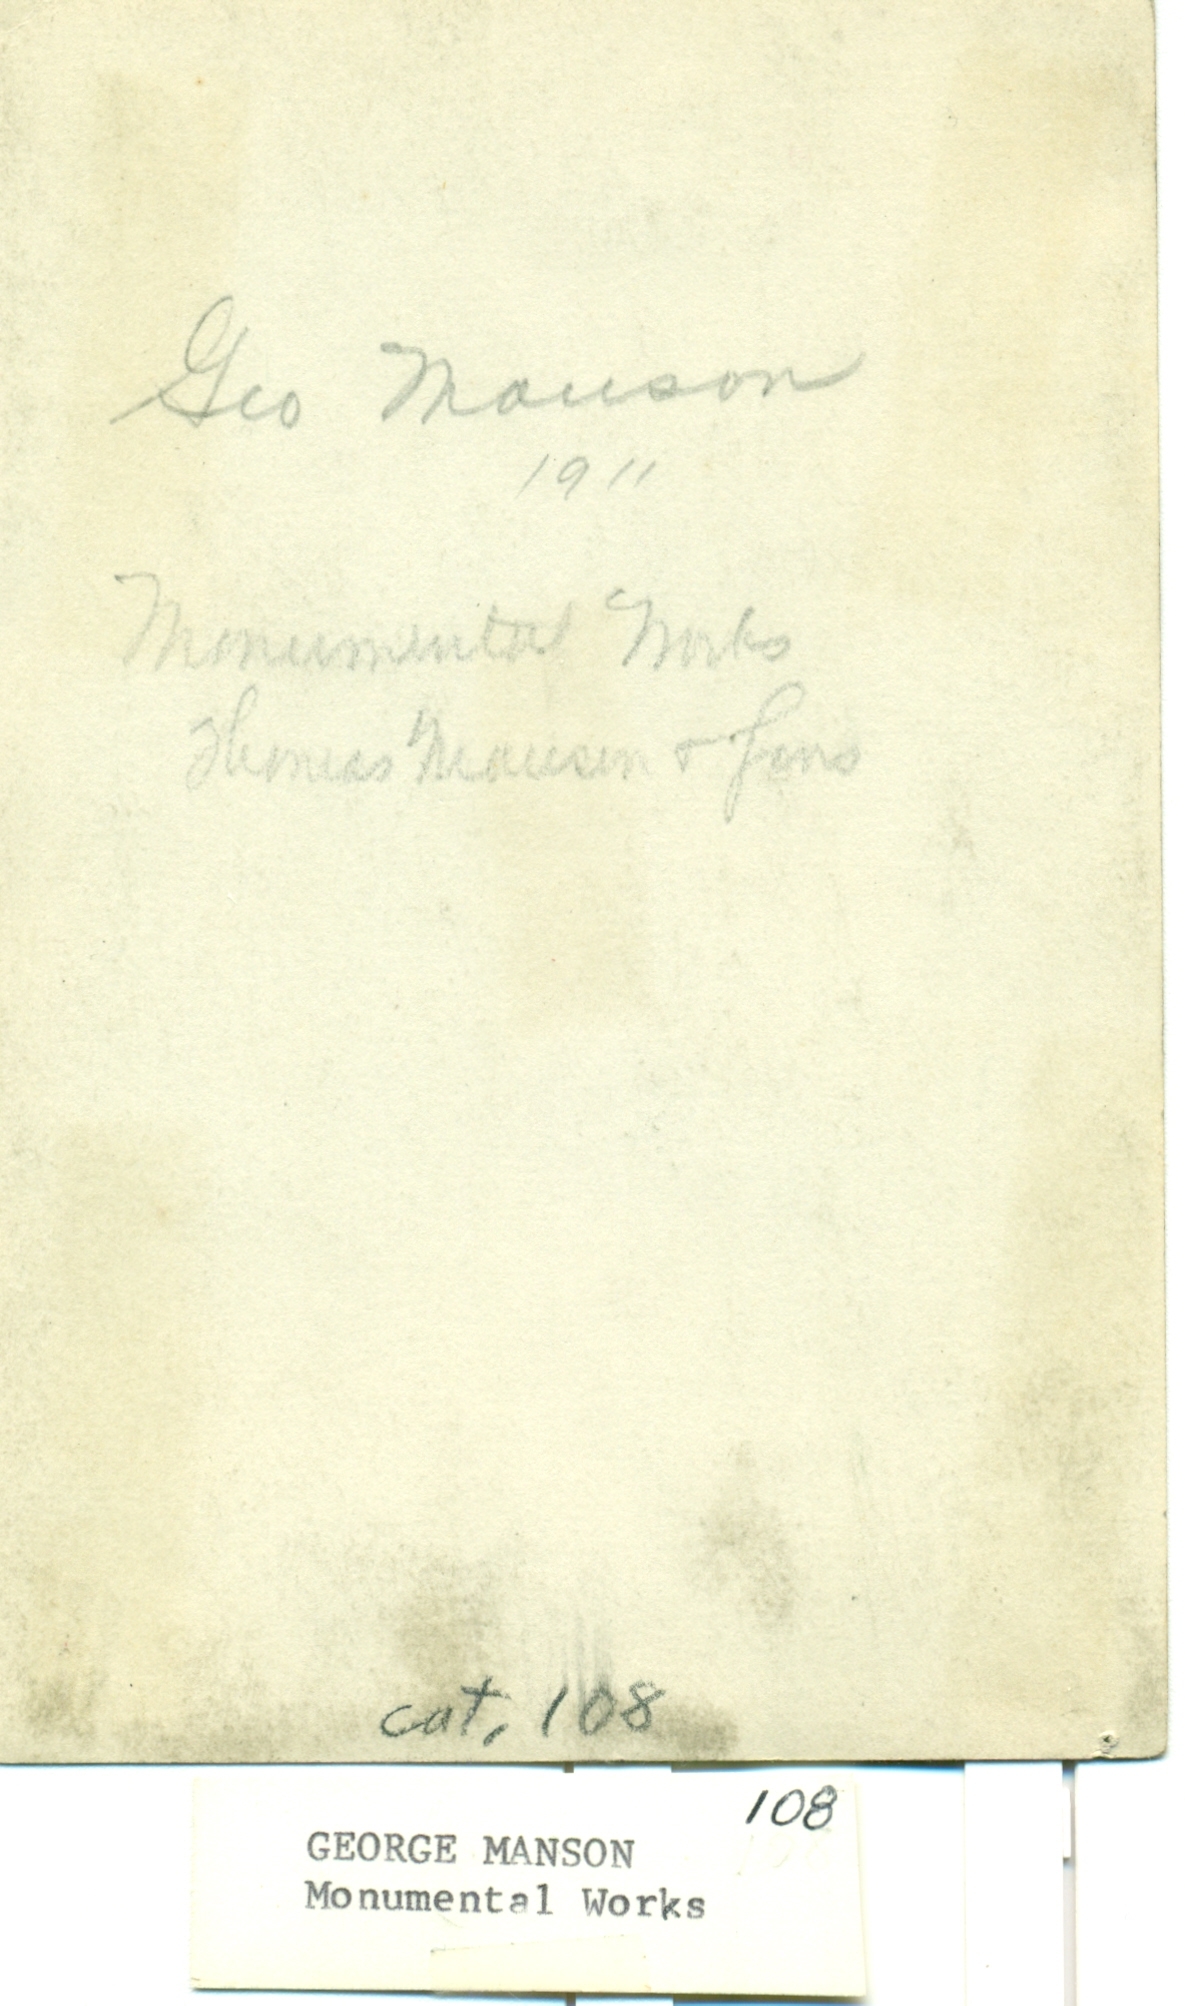 Geo Manson
1911
Monumental Works
Thomas Manson & Sons
cat. 108
108
GEORGE MANSON
Monumental Works